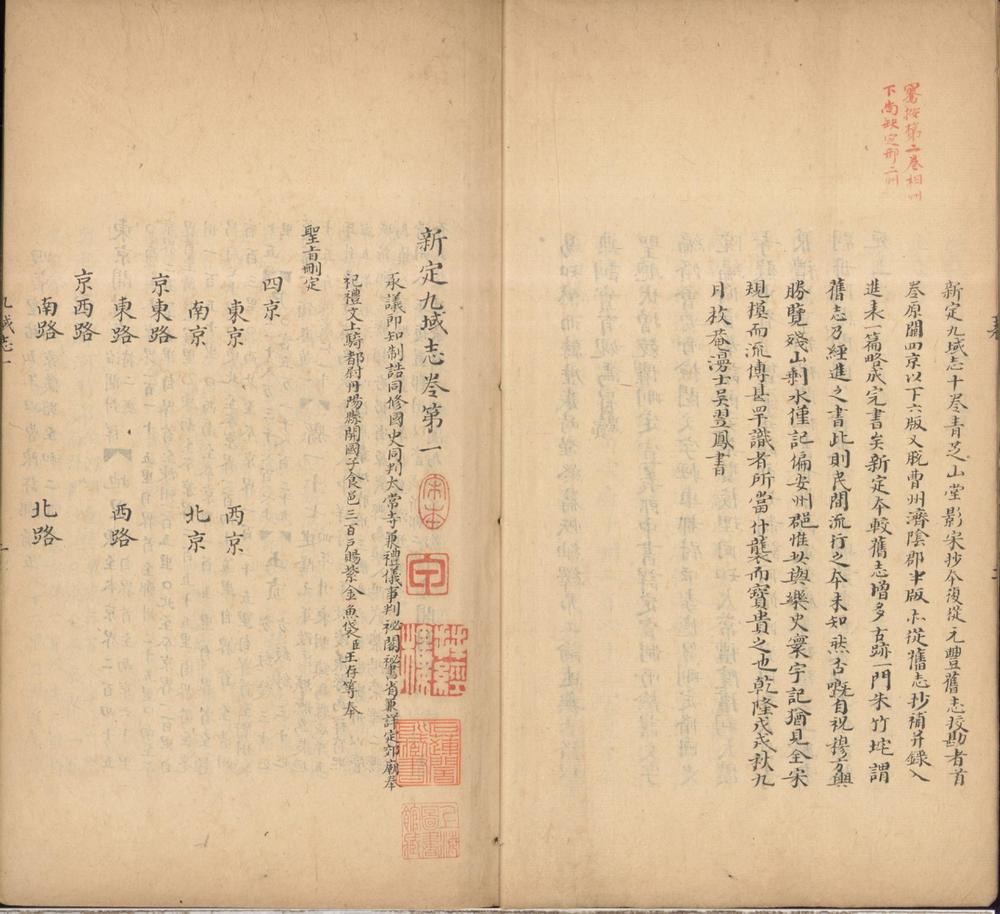 騫按第二卷相州
下尚缺定邢二州
新定九域志十卷青芝山堂影宋抄本復從元豐舊志挍勘者首
卷原闕四京以下六版又脫曹州濟陰郡半版亦從舊志抄補并錄入
進表一篇略成完書矣新定本較舊志增多古跡一門朱竹垞謂
舊志乃經進之書此則民間流行之本未知然否嘅自祝穆方輿
勝覽殘山剩水僅記偏安州郡惟此與樂史寰宇記猶見全宋
規模而流傳甚罕識者所當什襲而寶貴之也乾隆戊戌秋九
月枚菴漫士吳翌鳳書
新定九域志卷第一
承議郎知制誥同修國史同判太常寺兼禮儀事判祕閣祕書省兼詳定郊廟奉
祀禮文上騎都尉丹陽縣開國子食邑三百戶賜紫金魚袋臣王存等奉
聖旨刪定
四京
東京 西京
南京 北京
京東路
東路 西路
京西路
南路 北路
九域志一
上海
圖書
館藏